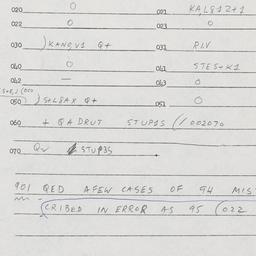 020 O 021 KAL812+1
022 O 023 O
030 )KANQV1 Q+ 031 RIV
040 O 041 STES+K1
042 — 043 O
050 )S+L8AX Q+ 051 O
060 + QADRUT STUP15 (/002070
070 Qv STUP35
901 QED A FEW CASES OF 94 MIS
CRIBED IN ERROR AS 95 (022